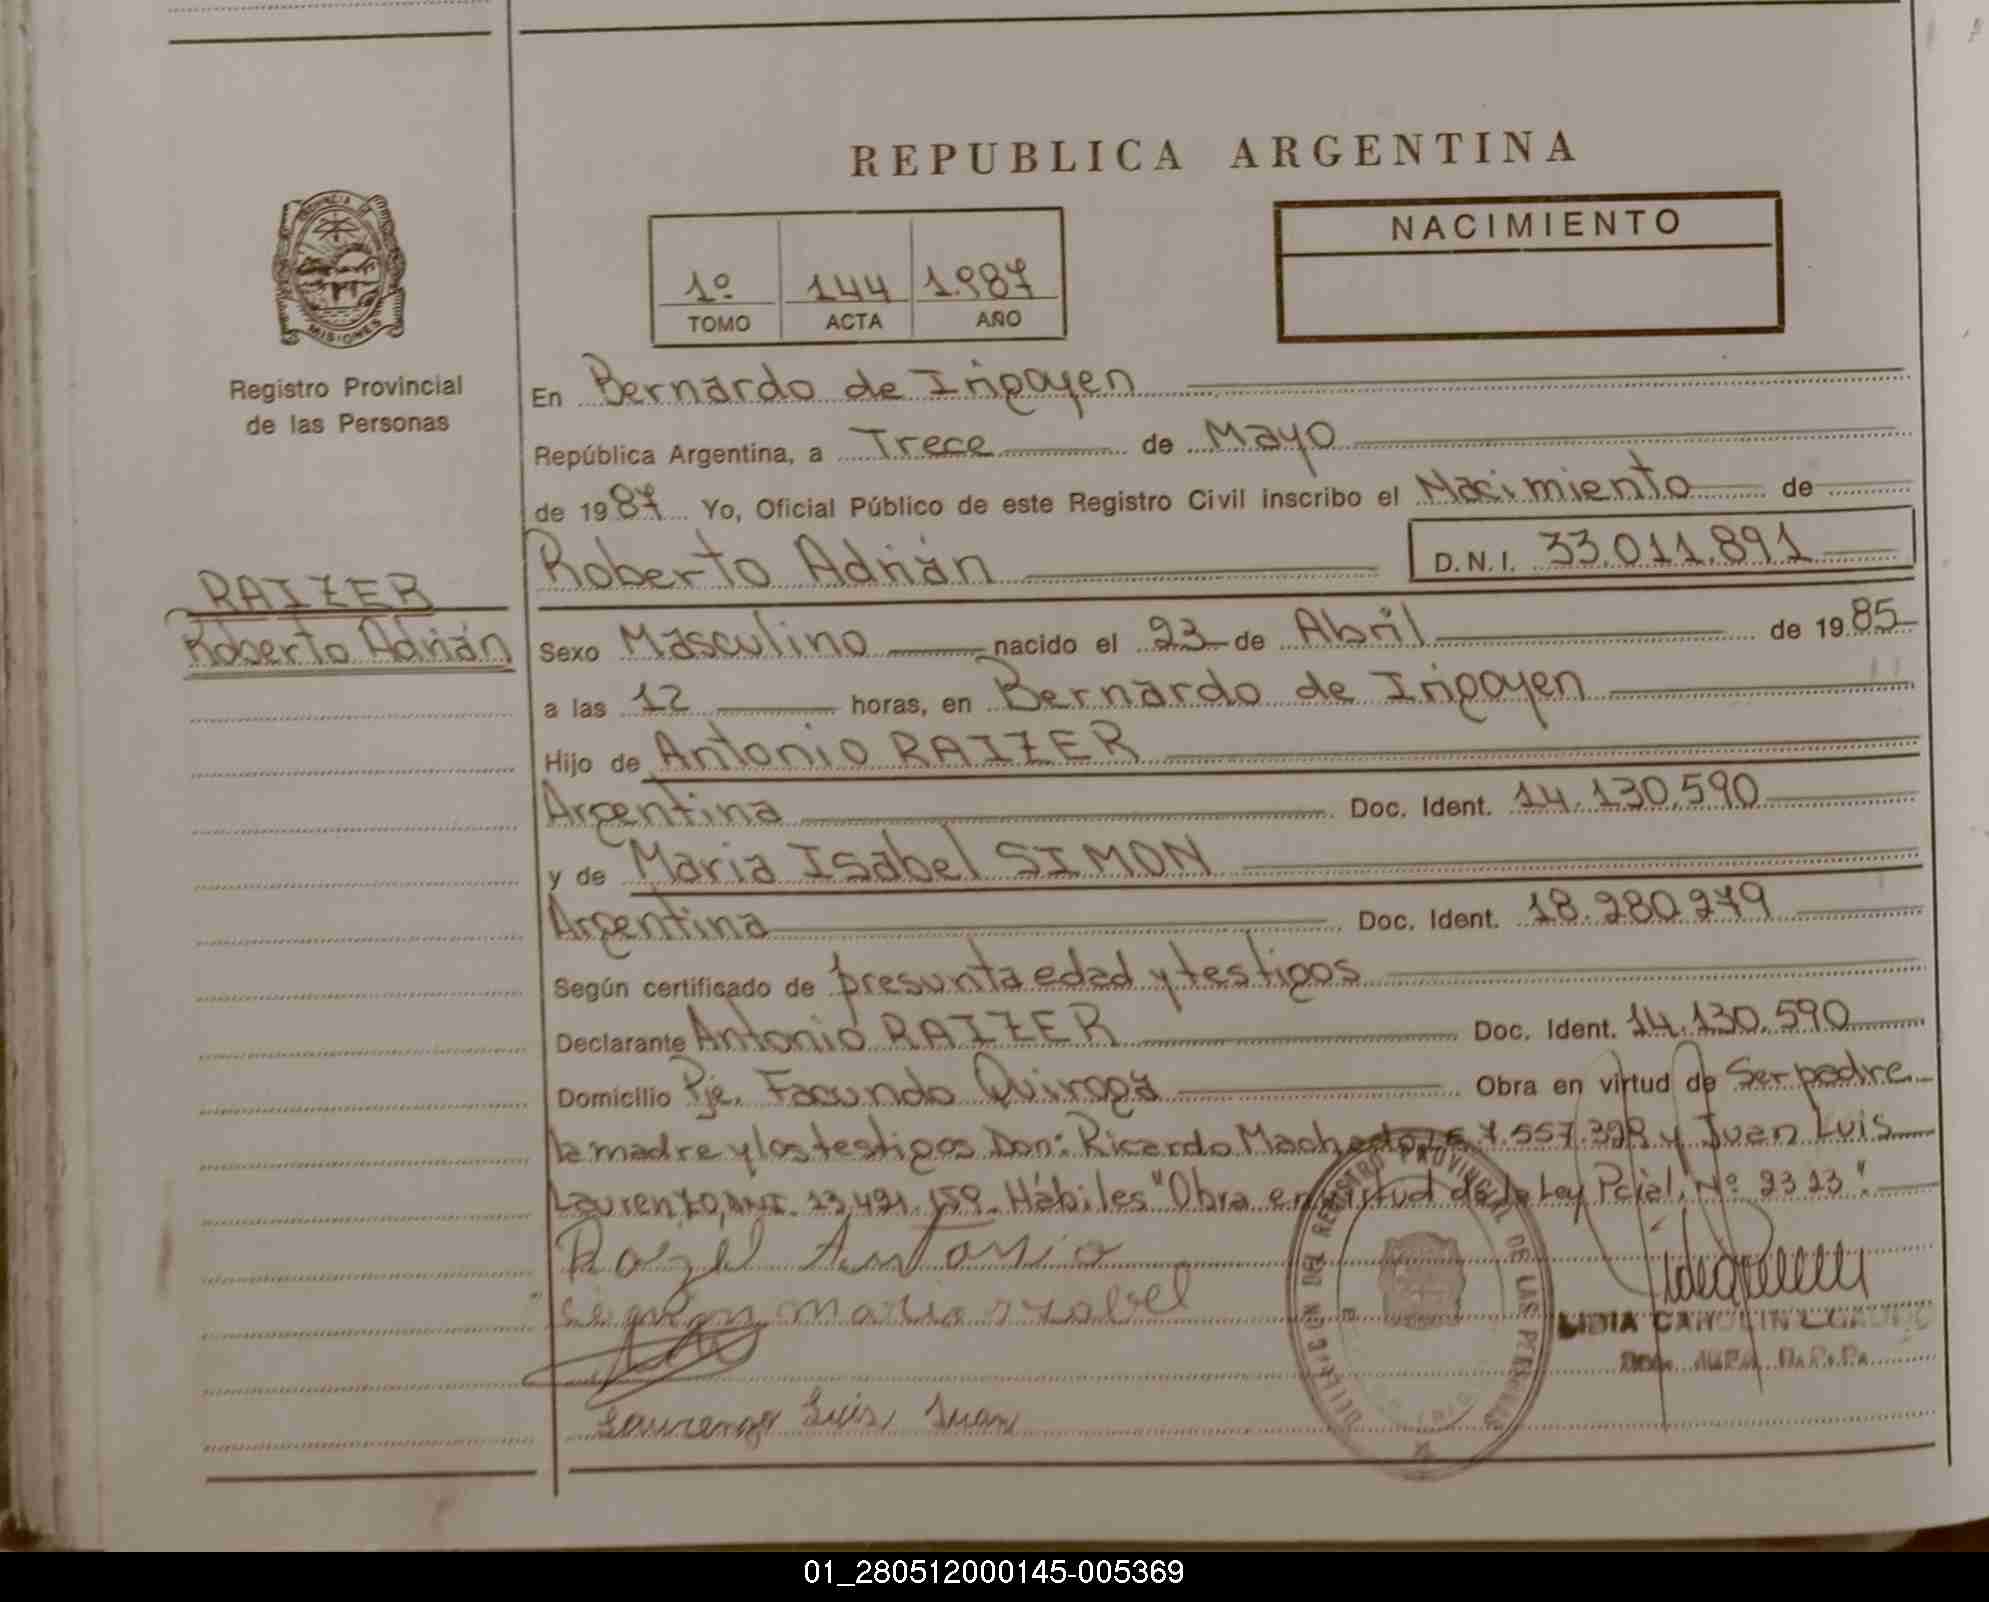 REPUBLICA ARGENTINA
NACIMIENTO
1º 144 1.987
TOMO ACTA AÑO
PROVINCIA DE
MISIONES
Registro Provincial
de las Personas
RAIZER
Roberto Adrián
En Bernardo de Irigoyen
República Argentina, a Trece de Mayo
de 1987 Yo, Oficial Público de este Registro Civil inscribo el Nacimiento de
Roberto Adrián D.N.I. 33.011.891
Sexo Masculino nacido el 23 de Abril de 1985
a las 12 horas, en Bernardo de Irigoyen
Hijo de Antonio RAIZER
Argentina Doc. Ident. 14.130.590
y de Maria Isabel SIMON
Argentina Doc. Ident. 18.280.279
Según certificado de presunta edad y testigos
Declarante Antonio RAIZER Doc. Ident. 14.130.590
Domicilio Pje. Facundo Quiroga Obra en virtud de Ser padre
la madre y los testigos Don: Ricardo Machado, 7.557. y Juan Luis
Laurenzo, DNI. 13.491.159. Hábiles "Obra en virtud de la Ley Pcial. Nº 2323".
Antonio
Maria
Luis Juan
DEL REGISTRO PROVINCIAL DE LAS PERSONAS
LIDIA
01_280512000145-005369